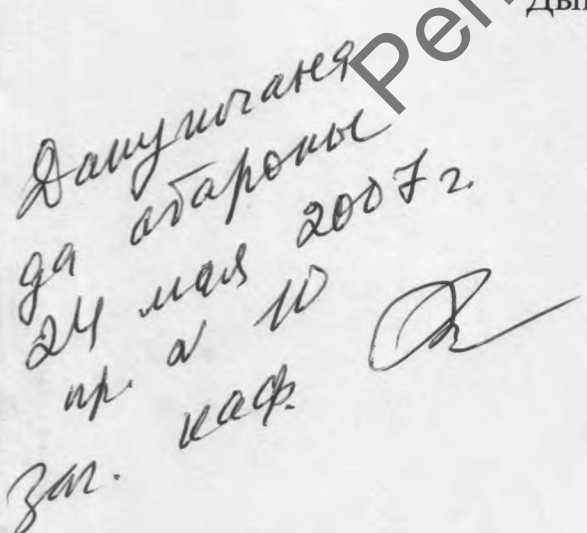 Дып
Реп
Дапушчана
да абароны
24 мая 2007 г.
пр. N 10
заг. каф.